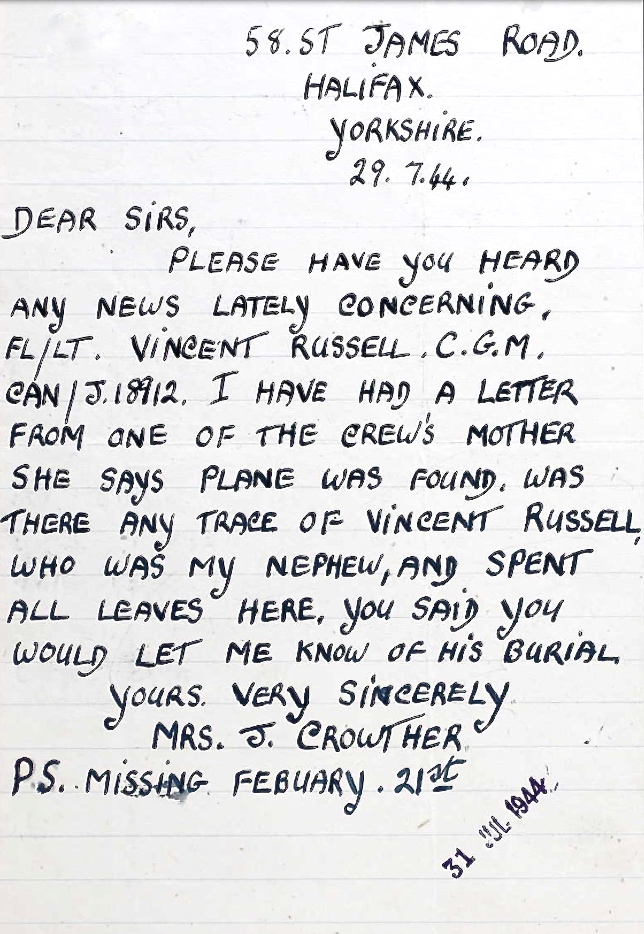 58. ST JAMES ROAD.
HALIFAX.
YORKSHIRE.
29. 7.44.
DEAR SIRS,
PLEASE HAVE YOU HEARD
ANY NEWS LATELY CONCERNING,
FL/LT. VINCENT RUSSELL. C.G.M.
CAN/J.18912. I HAVE HAD A LETTER
FROM ONE OF THE CREW'S MOTHER
SHE SAYS PLANE WAS FOUND. WAS
THERE ANY TRACE OF VINCENT RUSSELL,
WHO WAS MY NEPHEW, AND SPENT
ALL LEAVES HERE. YOU SAID YOU
WOULD LET ME KNOW OF HIS BURIAL.
YOURS. VERY SINCERELY
MRS. J. CROWTHER.
P.S. MISSING FEBUARY. 21st
31 JUL 1944